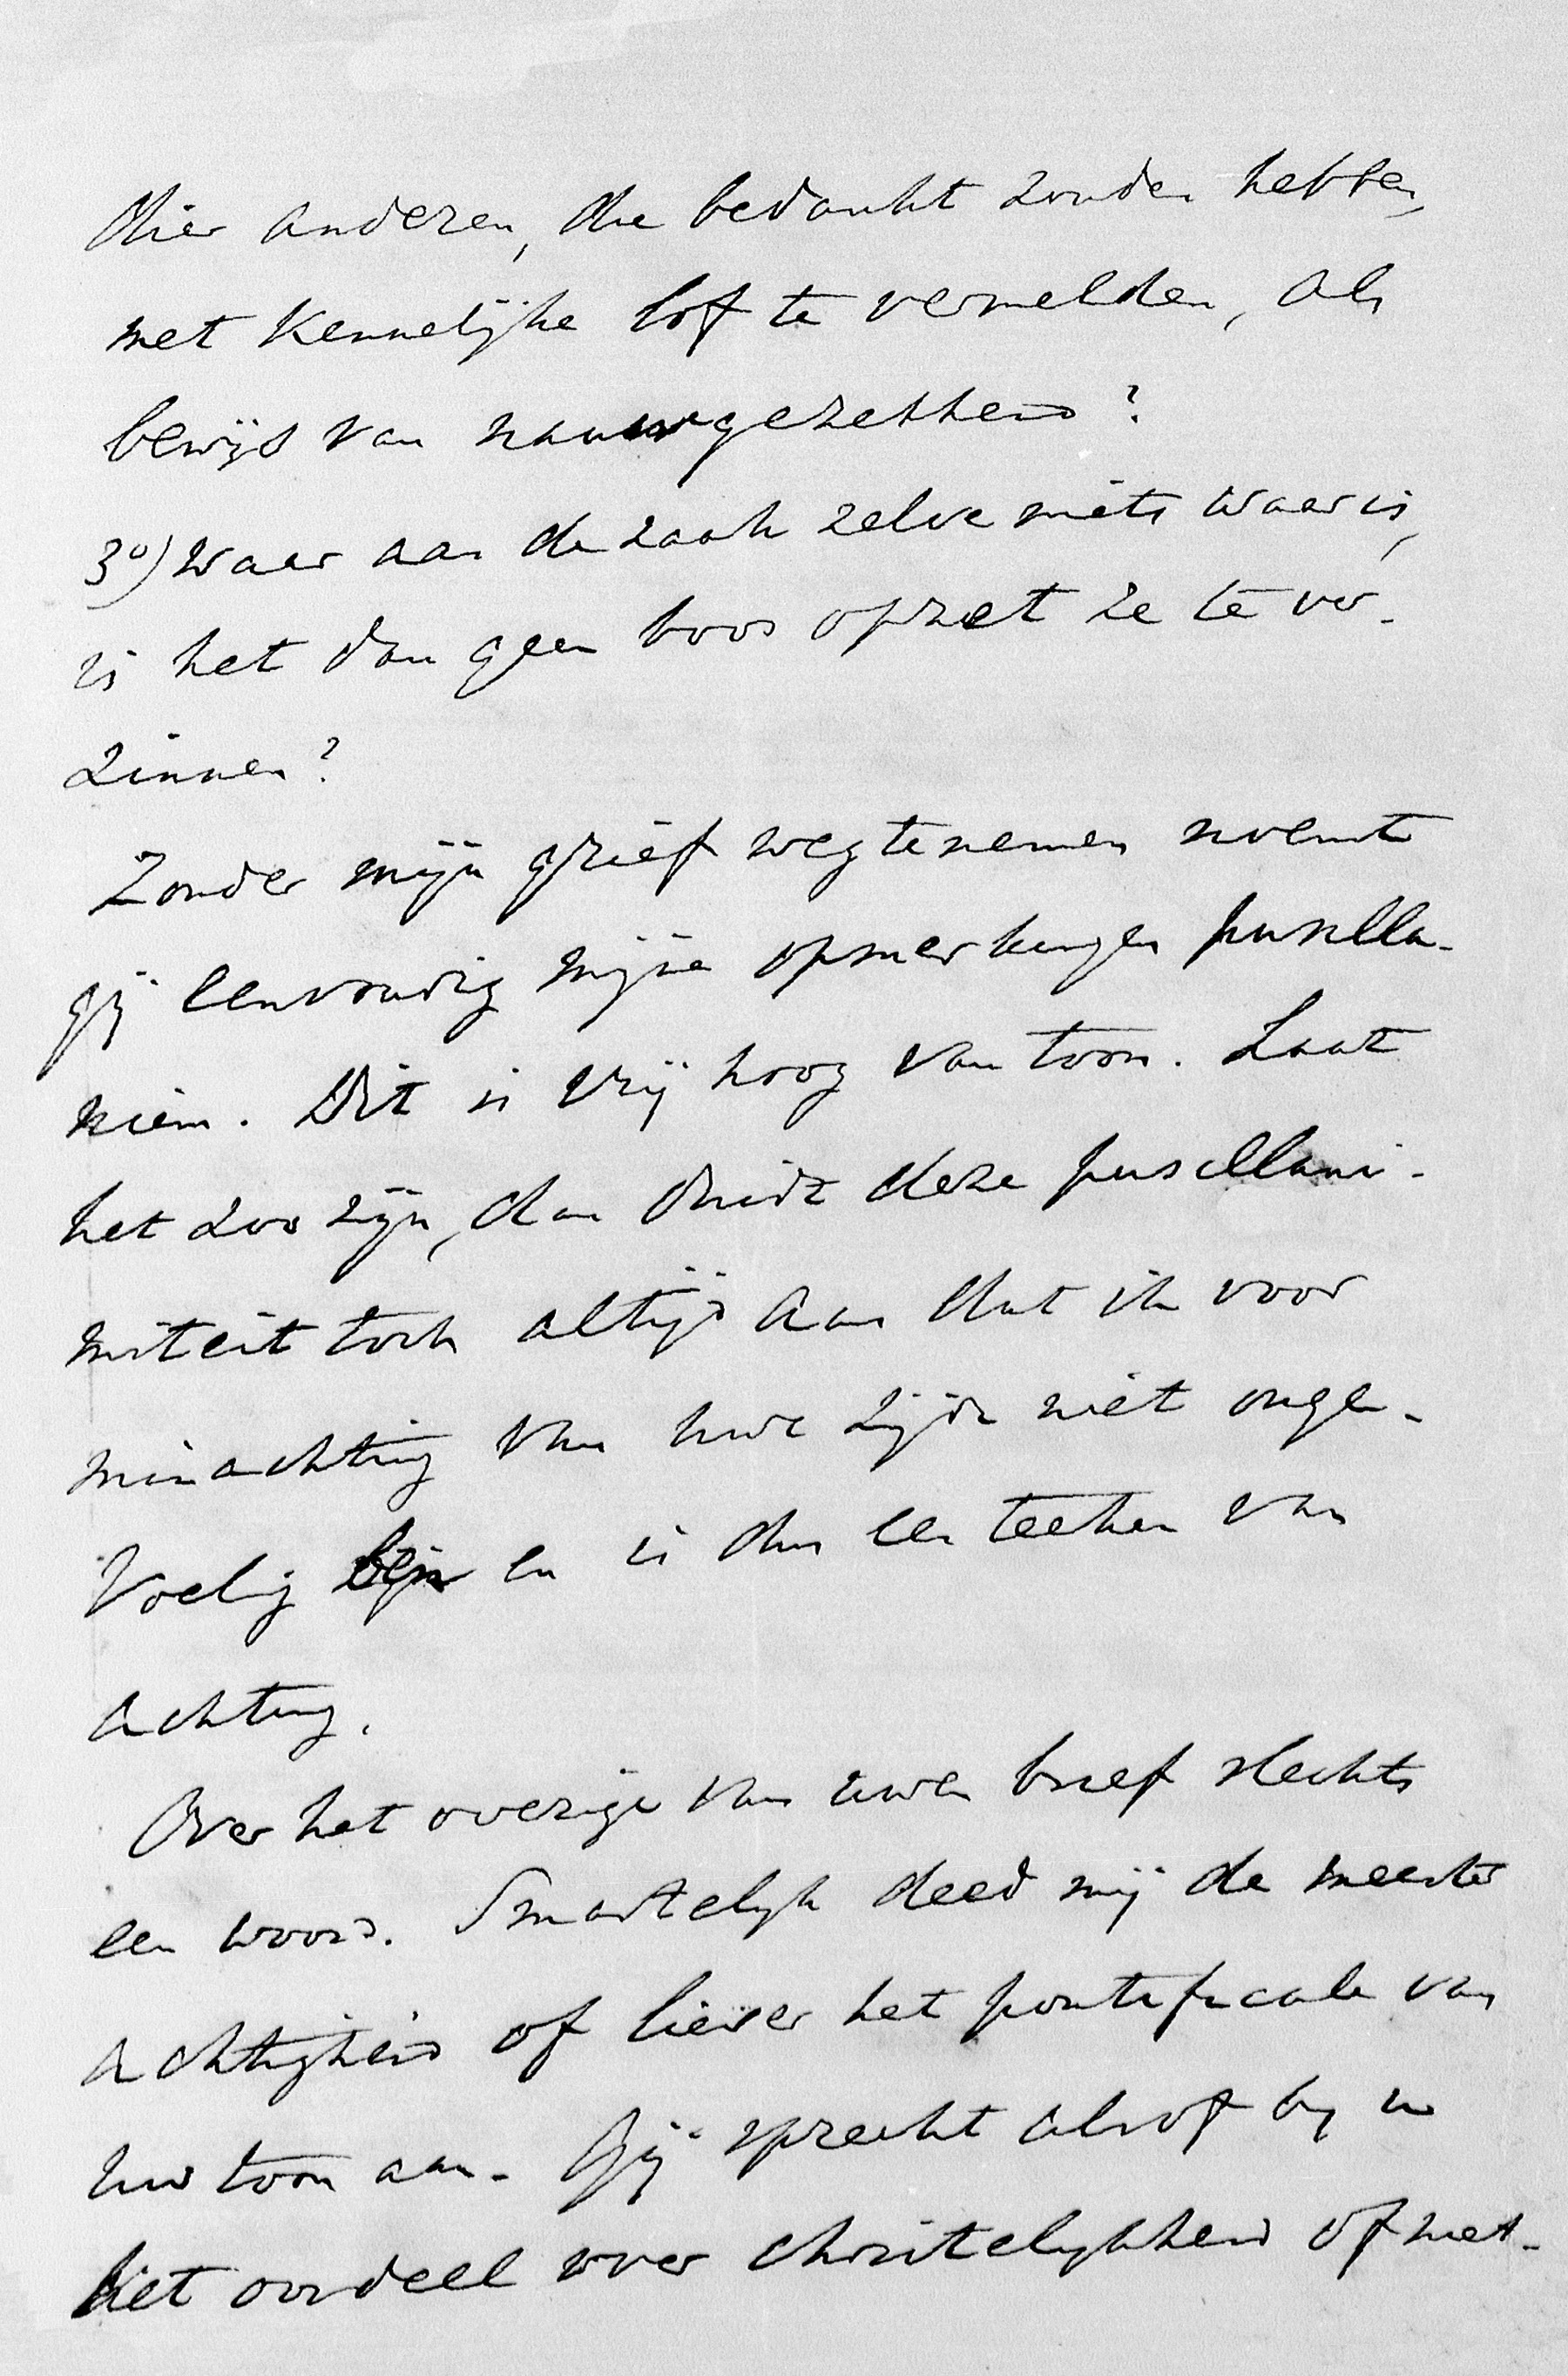 drie anderen, die bedankt zouden hebben,
met kennelijke lof te vermelden, als
bewijs van nauwgezetheid?
3º) Waar aan de zaak zelve niets waar is,
is het dan geen boos opzet ze te ver-
zinnen?
Zonder mijn grief wegtenemen noemt
gij eenvoudig mijne opmerkingen pusilla-
niem. Dit is vrij hoog van toon. Laat
het zoo zijn, dan duidt deze pusillani-
miteit toch altijd aan dat ik voor
minachting van uwe zijde niet onge-
voelig ben en is dus een teeken van
achting.
Over het overige van uwen brief slechts
een woord. Smartelijk deed mij de meester
achtigheid of liever het pontificale van
uw toon aan. Gij spreekt alsof bij u
het oordeel over christelijkheid of niet-